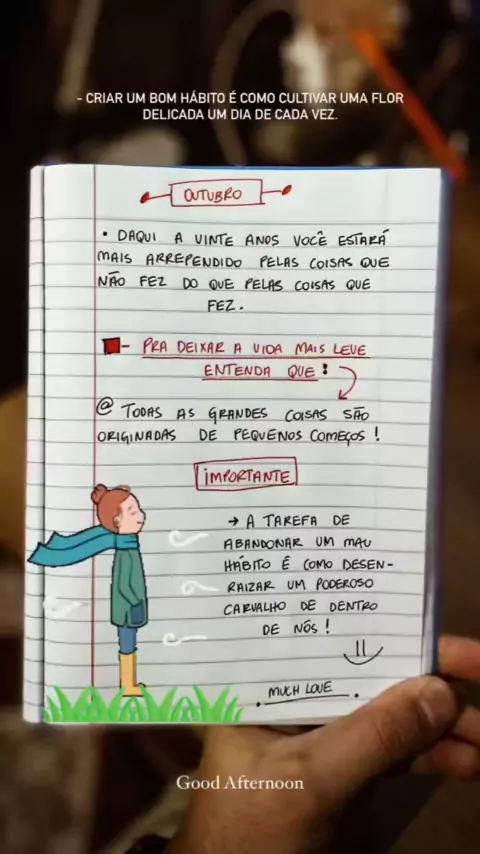 - CRIAR UM BOM HÁBITO É COMO CULTIVAR UMA FLOR
DELICADA UM DIA DE CADA VEZ.
OUTUBRO
• DAQUI A VINTE ANOS VOCÊ ESTARÁ
MAIS ARREPENDIDO PELAS COISAS QUE
NÃO FEZ DO QUE PELAS COISAS QUE
FEZ.
- PRA DEIXAR A VIDA MAIS LEVE
ENTENDA QUE:
@ TODAS AS GRANDES COISAS SÃO
ORIGINADAS DE PEQUENOS COMEÇOS!
IMPORTANTE
→ A TAREFA DE
ABANDONAR UM MAU
HÁBITO É COMO DESEN-
RAIZAR UM PODEROSO
CARVALHO DE DENTRO
DE NÓS!
MUCH LOVE
Good Afternoon